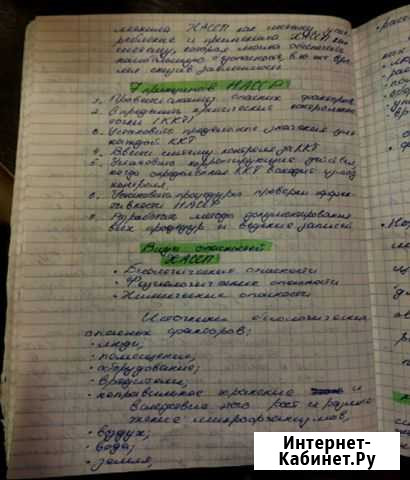 ХАССП как систему и
применения ХАССП как
систему, которая
7 принципов НАССР
1. Провести анализ опасных факторов
2. Определить критические контрольные
точки (ККТ)
3. Установить предельные значения для
каждой ККТ
4. Ввести систему контроля за ККТ
5. Установить корректирующие действия,
когда определенная ККТ выходит из под
контроля
6. Установить процедуры проверки эффек-
тивности НАССР
7. Разработать методы документирования
всех процедур и ведение записей
Виды опасностей
ХАССП
• Биологические опасности
• опасности
• Химические опасности
Источники биологических
опасных факторов:
• люди;
• помещение;
• оборудование;
• вредители;
• неправильное хранение и
вследствие чего рост и размно-
жение микроорганизмов;
• воздух;
• вода;
• земля;
Интернет-
Кабинет.Ру